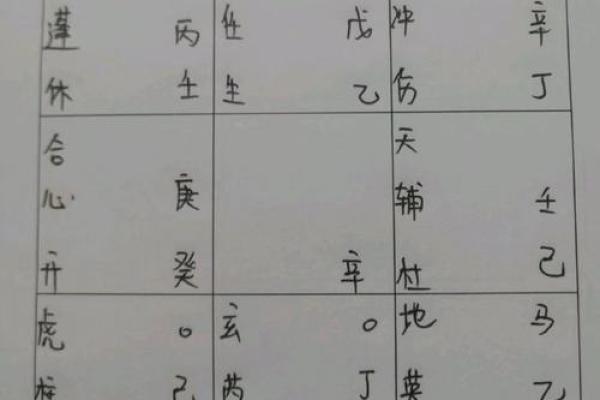 蓬 丙 任 戊 冲 辛
休 壬 生 乙 伤 丁
合 天
心 庚 辅 壬
开 癸 辛 杜 己
虎 0 玄 0 地 马
柱 己 芮 丁 英 乙